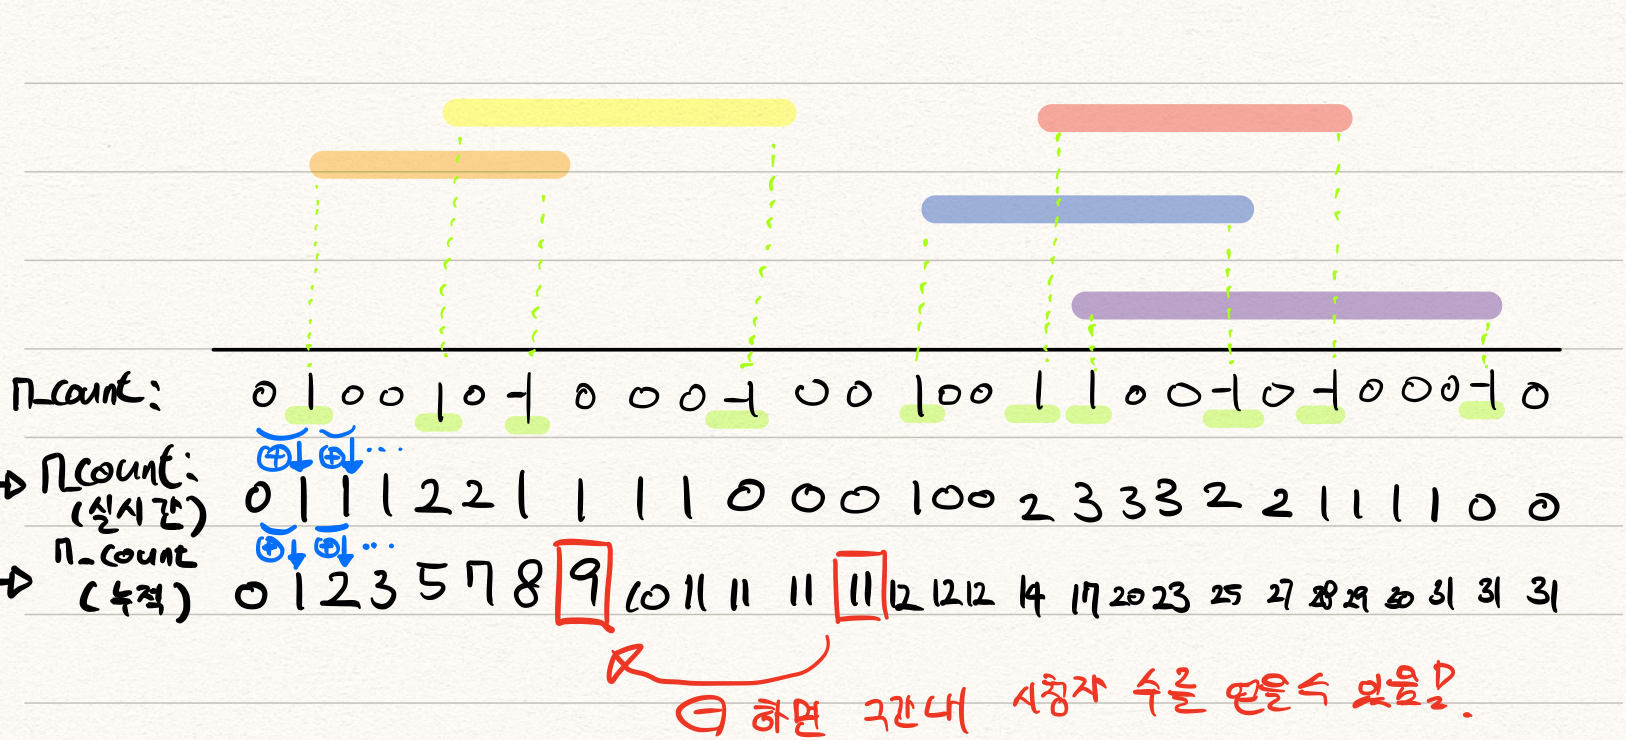 n_count: 0 1 0 0 1 0 -1 0 0 0 -1 0 0 1 0 0 1 1 0 0 -1 0 -1 0 0 0 -1 0
⊕↓ ⊕↓ ...
→ n_count: 0 1 1 1 2 2 1 1 1 1 0 0 0 1 0 0 2 3 3 3 2 2 1 1 1 1 0 0
(실시간)
⊕↓ ⊕↓ ...
→ n_count 0 1 2 3 5 7 8 9 10 11 11 11 11 12 12 12 14 17 20 23 25 27 28 29 30 31 31 31
(누적)
⊖ 하면 구간내 시청자 수를 얻을 수 있음!